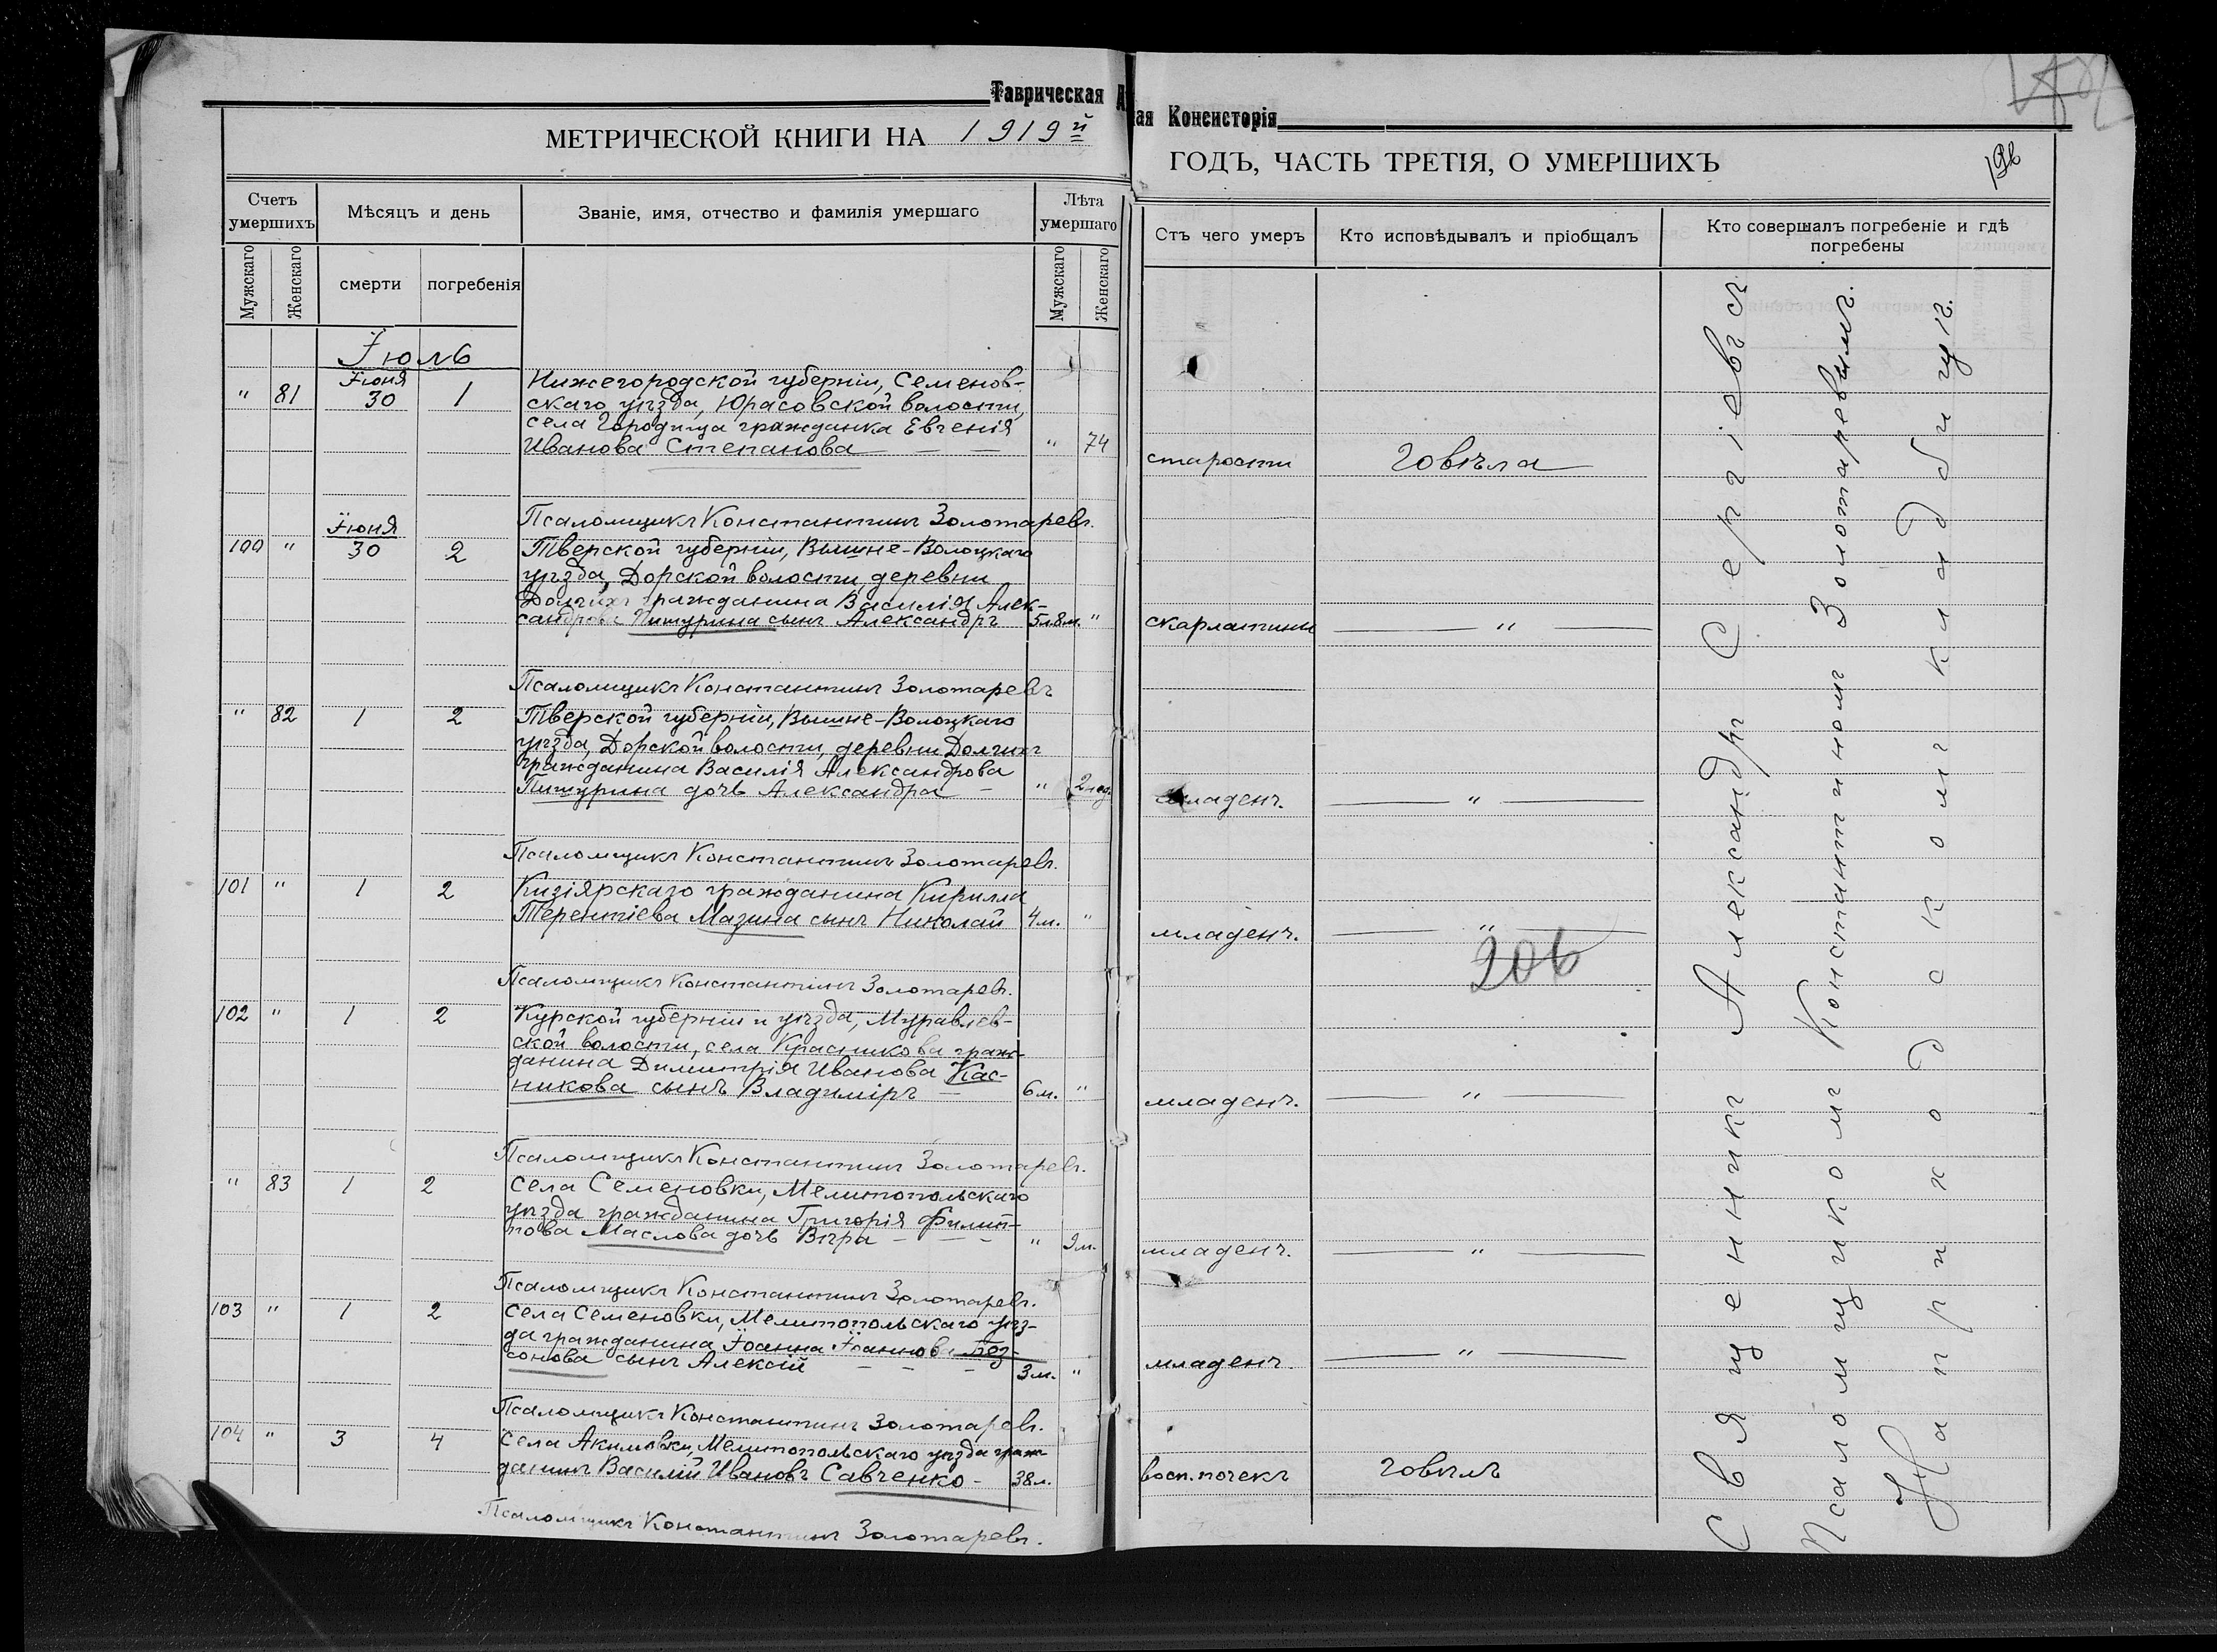 Таврическая
МЕТРИЧЕСКОЙ КНИГИ НА 1919й
Счетъ умершихъ
Мѣсяцъ и день
Званіе, имя, отчество и фамилія умершаго
Лѣта умершаго
Мужскаго
Женскаго
смерти
погребенія
Мужскаго
Женскаго
Іюль
" 81 Іюня 30 1 Нижегородской губерніи, Семенов-
скаго уѣзда, Юрасовской волости,
села Городица гражданка Евгенія
Иванова Степанова " 74
Псаломщикъ Константинъ Золотаревъ.
100 " Іюня 30 2 Тверской губерніи, Вышне-Волоцкаго
уѣзда, Дорской волости, деревни
Долгихъ гражданина Василія Алек-
сандрова Пишурина сынъ Александръ 5л.8м. "
Псаломщикъ Константинъ Золотаревъ
" 82 1 2 Тверской губерніи, Вышне-Волоцкаго
уѣзда, Дорской волости, деревни Долгихъ
гражданина Василія Александрова
Пишурина дочь Александра " 2 нед.
Псаломщикъ Константинъ Золотаревъ.
101 " 1 2 Кизіярскаго гражданина Кирилла
Терентіева Мазина сынъ Николай 4м. "
Псаломщикъ Константинъ Золотаревъ.
102 " 1 2 Курской губерніи и уѣзда, Муравлев-
ской волости, села Красникова граж-
данина Димитрія Иванова Кас-
никова сынъ Владиміръ 6м. "
Псаломщикъ Константинъ Золотаревъ.
" 83 1 2 Села Семеновки, Мелитопольскаго
уѣзда гражданина Григорія Филип-
пова Маслова дочь Вѣра " 9м.
Псаломщикъ Константинъ Золотаревъ.
103 " 1 2 Села Семеновки, Мелитопольскаго уѣз-
да гражданина Іоанна Іоаннова Без-
сонова сынъ Алексій 3м. "
Псаломщикъ Константинъ Золотаревъ.
104 " 3 4 Села Акимовки, Мелитопольскаго уѣзда граж-
данинъ Василій Ивановъ Савченко 38л.
Псаломщикъ Константинъ Золотаревъ.
ая Консисторія
ГОДЪ, ЧАСТЬ ТРЕТІЯ, О УМЕРШИХЪ
Стъ чего умеръ
Кто исповѣдывалъ и пріобщалъ
Кто совершалъ погребеніе и гдѣ
погребены
старости говѣла
скарлатины "
младенч. "
младенч. "
206
младенч. "
младенч. "
младенч. "
восп. почекъ говѣлъ
Священникъ Александръ Сергіевъ съ
Псаломщикомъ Константиномъ Золотаревымъ.
На приходскомъ кладбищѣ.